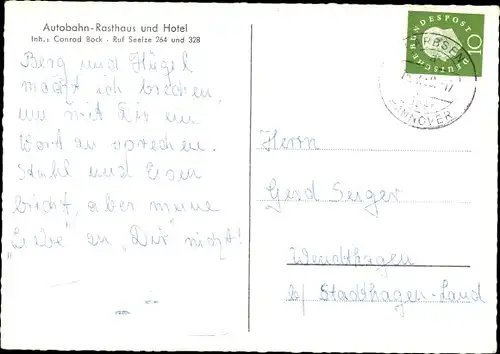 Autobahn-Rasthaus und Hotel
Inh.: Conrad Bock - Ruf Seelze 264 und 328
Berg und Hügel
möcht ich brechen,
um mit Dir ein
Wort zu sprechen.
Stahl und Eisen
bricht, aber meine
"Liebe" zu "Dir" nicht!
DEUTSCHE BUNDESPOST
10
HANNOVER
Herrn
Gerd Seeger
Wendthagen
b/ Stadthagen-Land